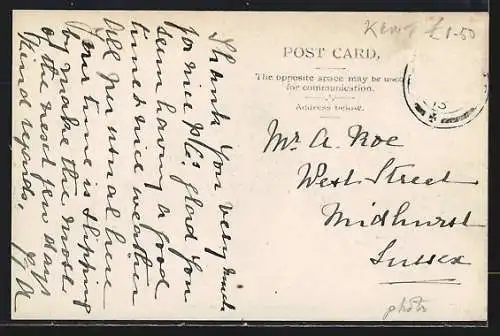 Kent £1-50
POST CARD.
The opposite space may be used
for communication.
Address below.
Thank you very much
for nice P.C. glad you
seem having a good
time & nice weather
All per usual here
your time is slipping
by make the most
of the next few days
Kind regards,
Mr A. Roe
West Street
Midhurst
Sussex
photo